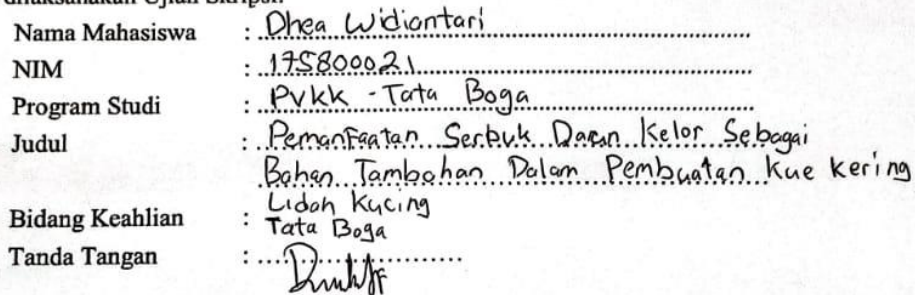 dilaksanakan Ujian Skripsi.
Nama Mahasiswa : Dhea Widiantari
NIM : 175800021
Program Studi : PVKK - Tata Boga
Judul : Pemanfaatan Serbuk Daun Kelor Sebagai
Bahan Tambahan Dalam Pembuatan Kue Kering
Lidah Kucing
Bidang Keahlian : Tata Boga
Tanda Tangan :